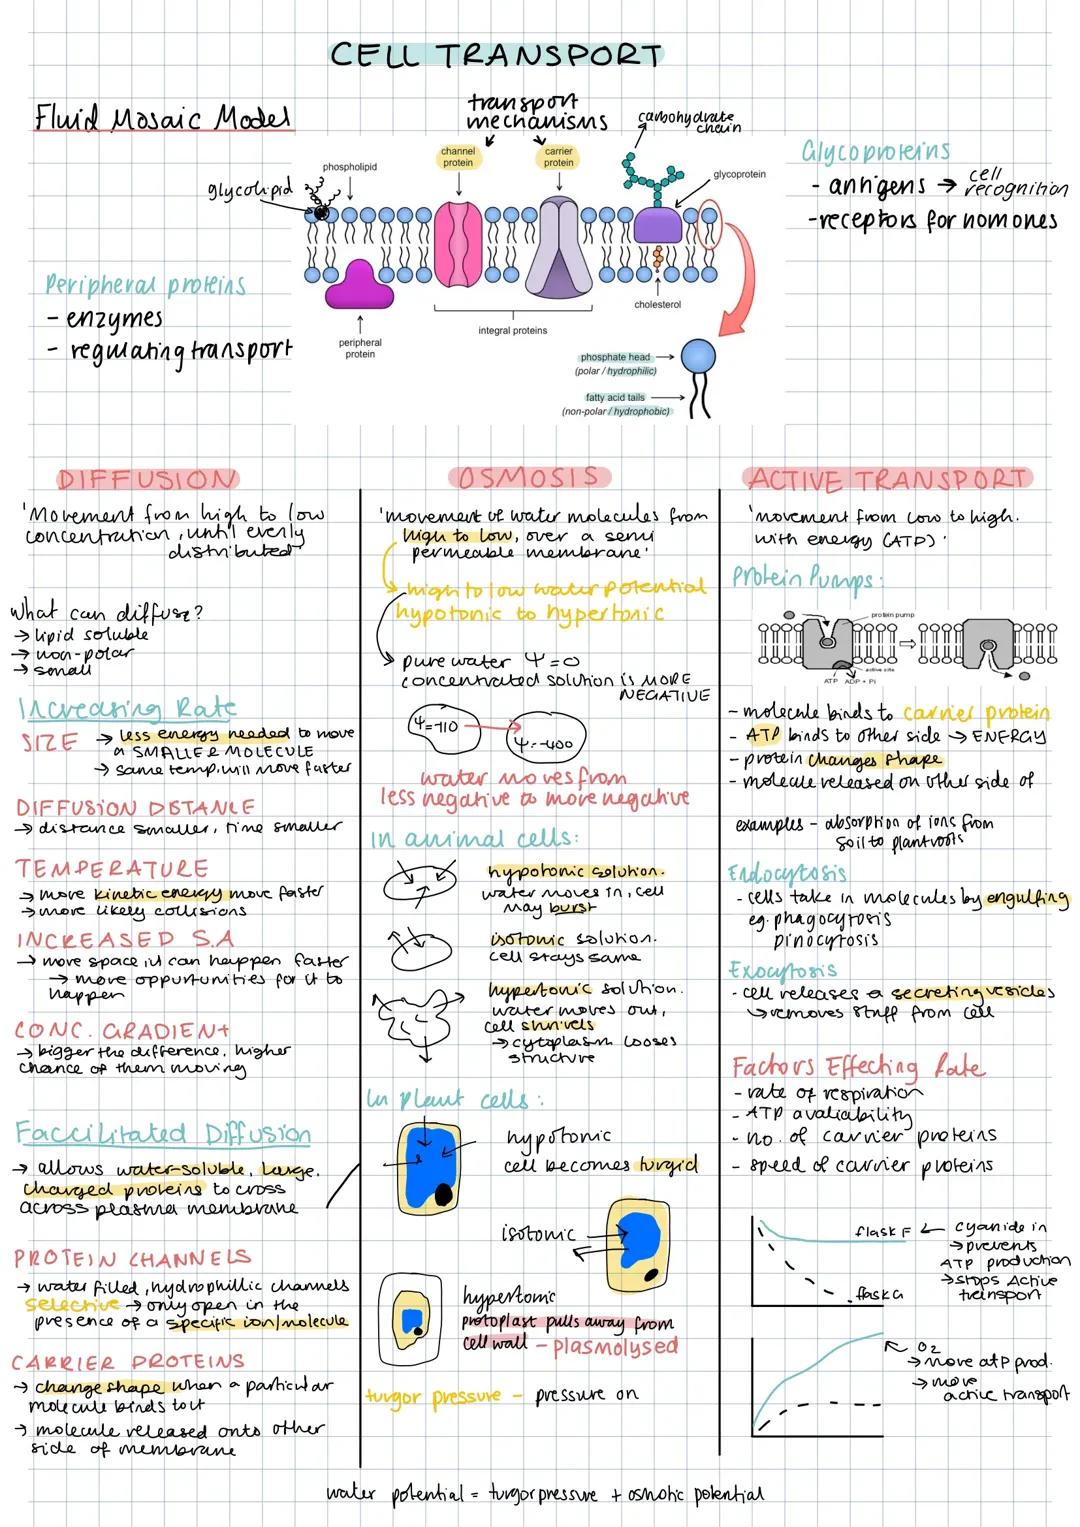 CELL TRANSPORT
Fluid Mosaic Model
transport
mechanisms
carbohydrate
chain
channel
protein
carrier
protein
phospholipid
glycolipid
glycoprotein
Glycoproteins
- antigens → cell
recognition
- receptors for hormones
Peripheral proteins
- enzymes
- regulating transport
cholesterol
integral proteins
peripheral
protein
phosphate head
(polar / hydrophilic)
fatty acid tails
(non-polar / hydrophobic)
DIFFUSION
'Movement from high to low
concentration, until evenly
distributed'
What can diffuse?
→ lipid soluble
→ non-polar
→ small
Increasing Rate
SIZE → less energy needed to move
a SMALLER MOLECULE
→ same temp, will move faster
DIFFUSION DISTANCE
→ distance smaller, time smaller
TEMPERATURE
→ more kinetic energy move faster
→ more likely collisions
INCREASED S.A
→ more space, it can happen faster
→ more oppurtunities for it to
happen
CONC. GRADIENT
→ bigger the difference, higher
chance of them moving
Faccilitated Diffusion
→ allows water-soluble, large,
charged proteins to cross
across plasma membrane
PROTEIN CHANNELS
→ water filled, hydrophillic channels
selective → only open in the
presence of a specific ion/molecule
CARRIER PROTEINS
→ change shape when a particular
molecule binds to it
→ molecule released onto other
side of membrane
OSMOSIS
'movement of water molecules from
high to low, over a semi
permeable membrane'
high to low water potential
hypotonic to hypertonic
pure water Ψ=0
concentrated solution is MORE
NEGATIVE
Ψ=-110
Ψ=-400
water moves from
less negative to more negative
In animal cells:
hypotonic solution.
water moves in, cell
may burst
isotonic solution.
cell stays same
hypertonic solution.
water moves out,
cell shrivels
→ cytoplasm looses
structure
In plant cells:
hypotonic
cell becomes turgid
isotonic
hypertonic
protoplast pulls away from
cell wall - plasmolysed
turgor pressure - pressure on
ACTIVE TRANSPORT
'movement from low to high.
with energy (ATP)'
Protein Pumps:
protein pump
active site
ATP ADP + Pi
- molecule binds to carrier protein
- ATP binds to other side → ENERGY
- protein changes shape
- molecule released on other side of
examples - absorption of ions from
soil to plant roots
Endocytosis
- cells take in molecules by engulfing
eg. phagocytosis
pinocytosis
Exocytosis
- cell releases a secreting vesicles
↳ removes stuff from cell
Factors Effecting Rate
- rate of respiration
- ATP avaliability
- no. of carrier proteins
- speed of carrier proteins
flask F ← cyanide in
→ prevents
ATP production
→ stops Active
transport
flask G
O2
→ more atp prod.
→ more
active transport
water potential = turgor pressure + osmotic potential